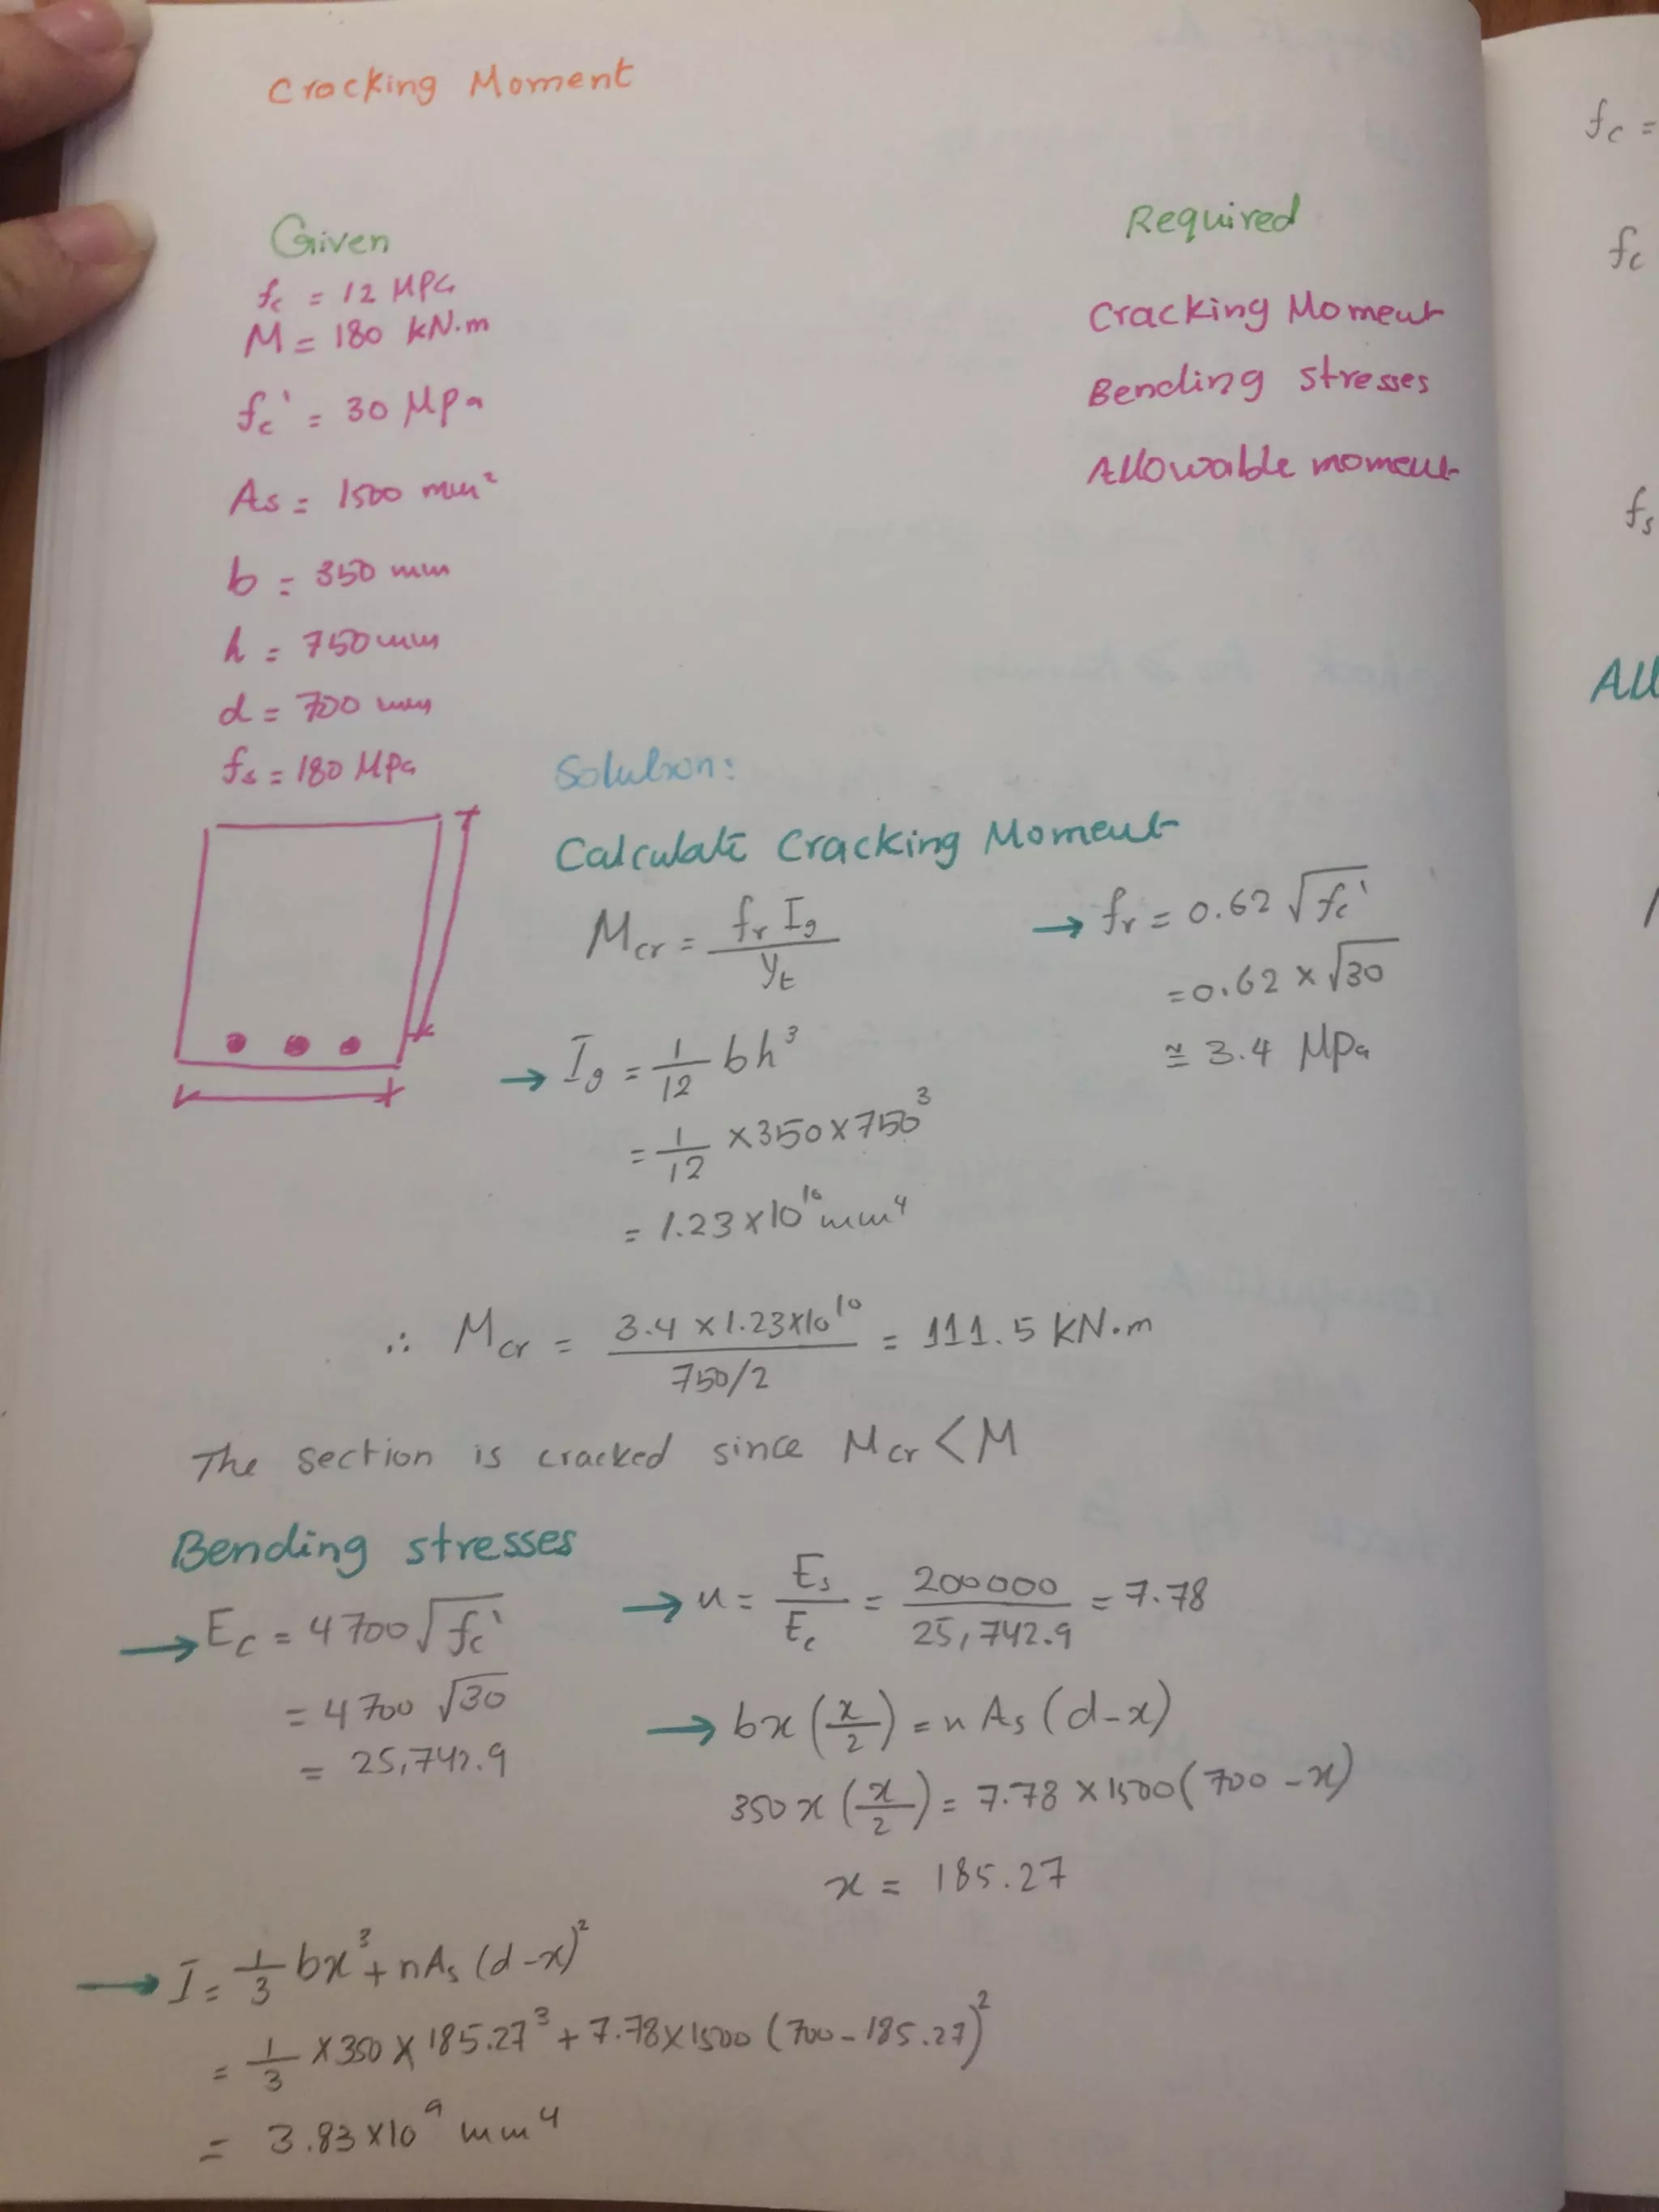 Cracking Moment
Given
fc = 12 MPa
M = 180 kN.m
fc' = 30 Mpa
As = 1500 mm²
b = 350 mm
h = 750 mm
d = 700 mm
fs = 180 MPa
Required
Cracking Moment
Bending stresses
Allowable moment
Solution:
Calculate Cracking Moment
Mcr = fr Ig / yt
→ fr = 0.62 √fc'
= 0.62 × √30
≅ 3.4 Mpa
→ Ig = 1/12 bh³
= 1/12 × 350 × 750³
= 1.23 × 10¹⁰ mm⁴
∴ Mcr = 3.4 × 1.23×10¹⁰ / 750/2 = 111.5 kN.m
The section is cracked since Mcr < M
Bending stresses
→ Ec = 4700 √fc'
= 4700 √30
= 25,742.9
→ n = Es / Ec = 200000 / 25,742.9 = 7.78
→ bx (x/2) = n As (d-x)
350 x (x/2) = 7.78 × 1500 (700 - x)
x = 185.27
→ I = 1/3 bx³ + nAs (d-x)²
= 1/3 × 350 × 185.27³ + 7.78 × 1500 (700 - 185.27)²
= 3.83 × 10⁹ mm⁴
fc =
fc
fs